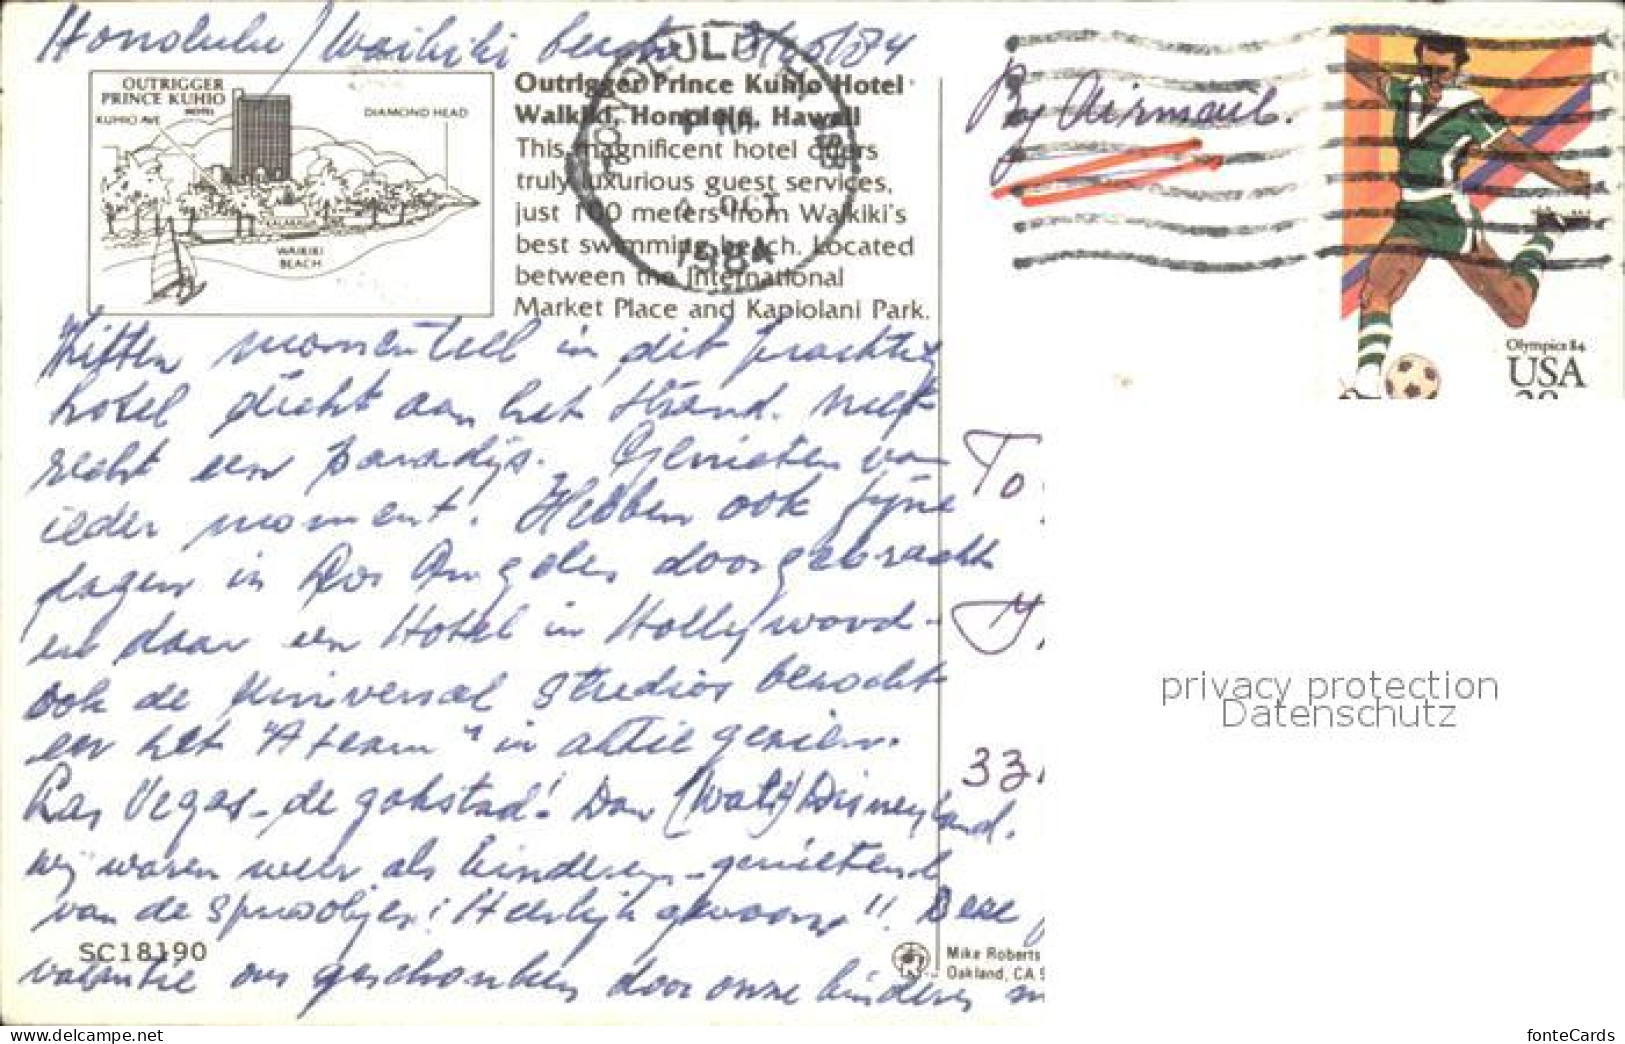 Honolulu/Waikiki beach 2/10/84
OUTRIGGER
PRINCE KUHIO
HOTEL
KUHIO AVE
DIAMOND HEAD
KALAKAUA
WAIKIKI
BEACH
Outrigger Prince Kuhio Hotel
Waikiki, Honolulu, Hawaii
This magnificent hotel offers
truly luxurious guest services,
just 100 meters from Waikiki's
best swimming beach. Located
between the International
Market Place and Kapiolani Park.
HONOLULU
PM
2 OCT
1984
By Airmail.
Olympics 84
USA
Zitten momenteel in dit prachtig
hotel dicht aan het strand.
recht een paradijs. Genieten van
ieder moment. Hebben ook fijne
dagen in Los Angeles doorgebracht
en daar een Hotel in Hollywood-
ook de Universal studios bezocht
en het "A team" in aktie gezien.
Las Vegas-de gokstad! Dan (Walt) Disneyland.
wij waren weer als kinderen-genietend
van de sprookjes! Heerlijk gewoon!! Deze
vakantie ons geschonken door onze kinderen
To
33
SC18190
Mike Roberts
Oakland, CA 9
privacy protection
Datenschutz
fonteCards
www.delcampe.net